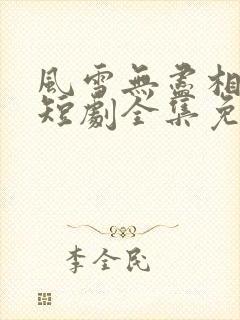 風雪無盡相
短劇全集免
李全民